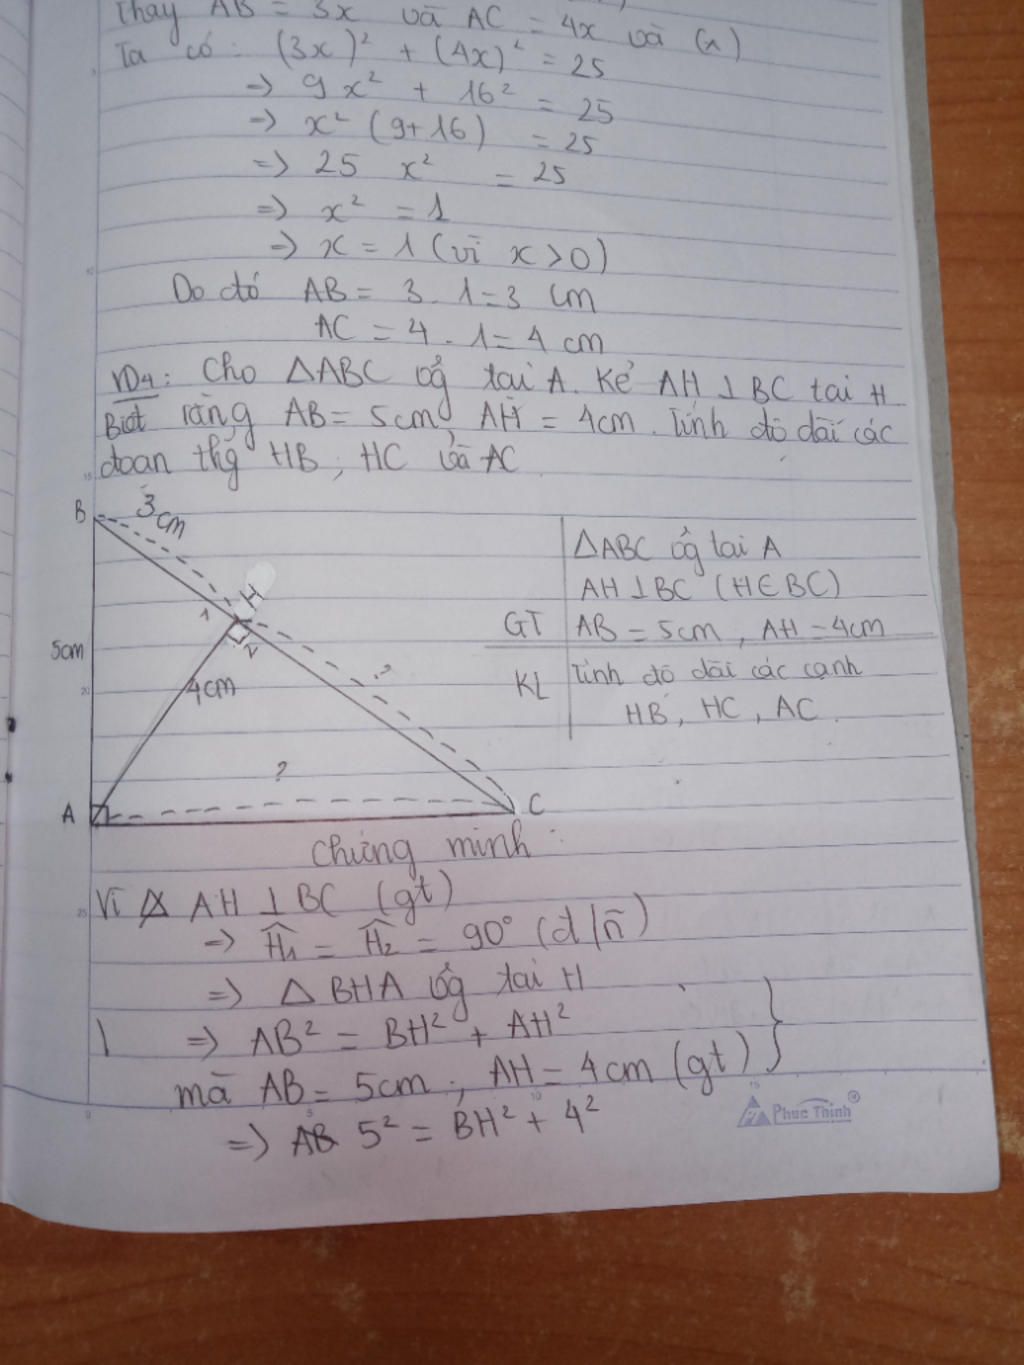 Thay AB = 3x và AC = 4x và (1)
Ta có: (3x)² + (4x)² = 25
=> 9x² + 16² = 25
=> x² (9+16) = 25
=> 25 x² = 25
=> x² = 1
=> x = 1 (vì x > 0)
Do đó AB = 3 . 1 = 3 cm
AC = 4 . 1 = 4 cm
VD4: Cho ΔABC vg tại A. Kẻ AH ⊥ BC tại H
Biết rằng AB = 5cm, AH = 4cm. Tính độ dài các
đoạn thg HB, HC và AC
B
3cm
H
1
2
5cm
4cm
?
?
A
C
ΔABC vg tại A
AH ⊥ BC (H ∈ BC)
GT AB = 5cm, AH = 4cm
KL Tính độ dài các cạnh
HB, HC, AC.
Chứng minh:
Vì AH ⊥ BC (gt)
=> Ĥ₁ = Ĥ₂ = 90° (đ/n)
=> Δ BHA vg tại H
=> AB² = BH² + AH²
mà AB = 5cm, AH = 4cm (gt)
=> AB 5² = BH² + 4²
Phuc Thinh®